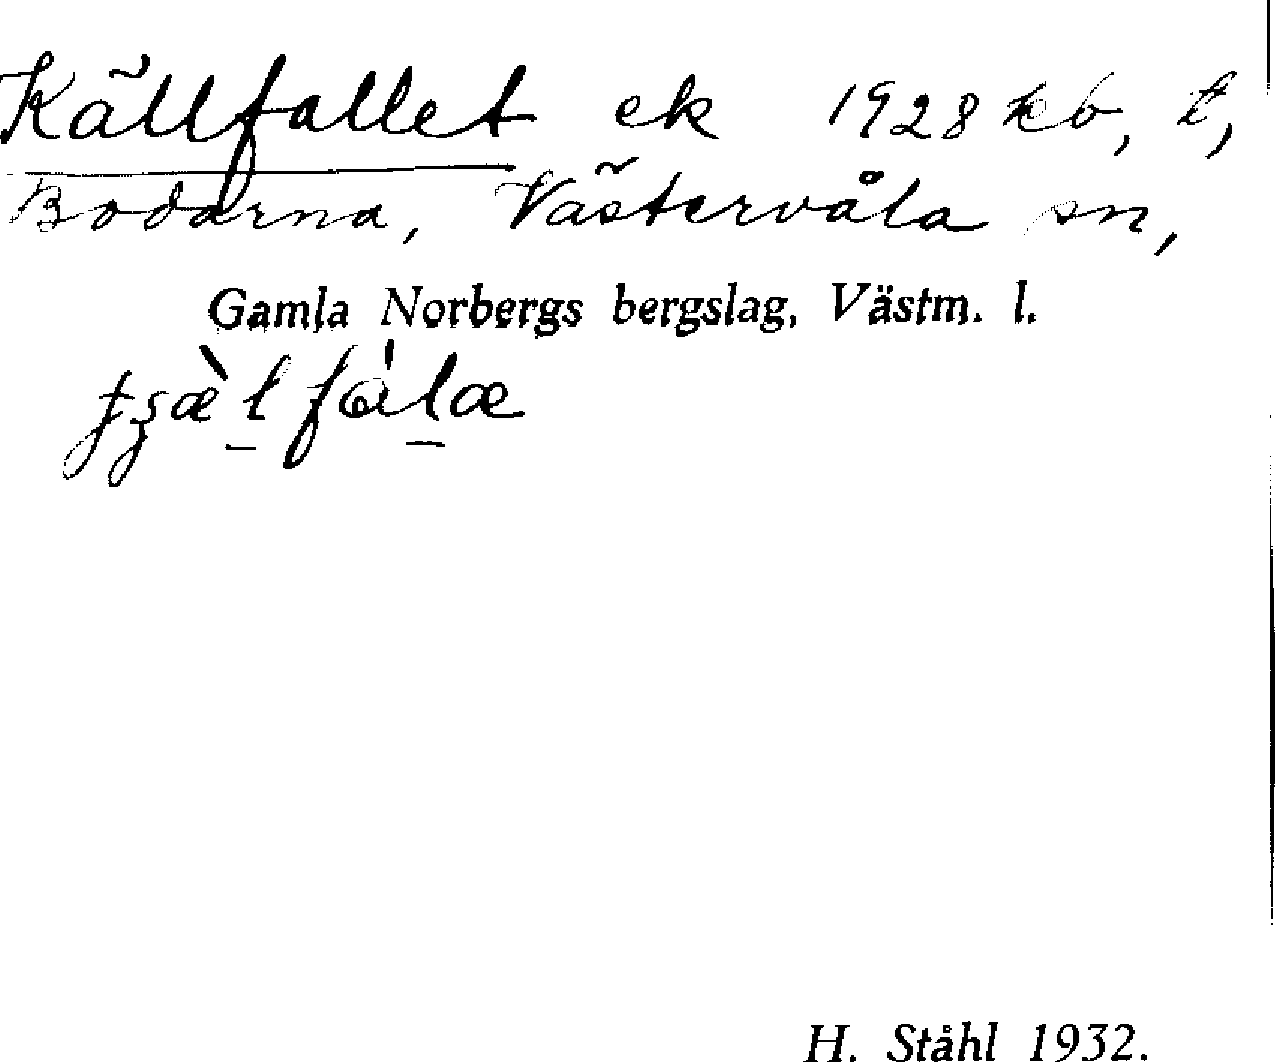 Källfallet ek 1928 kb, t,
Bodarna, Västervåla sn,
Gamla Norbergs bergslag, Västm. l.
H. Ståhl 1932.